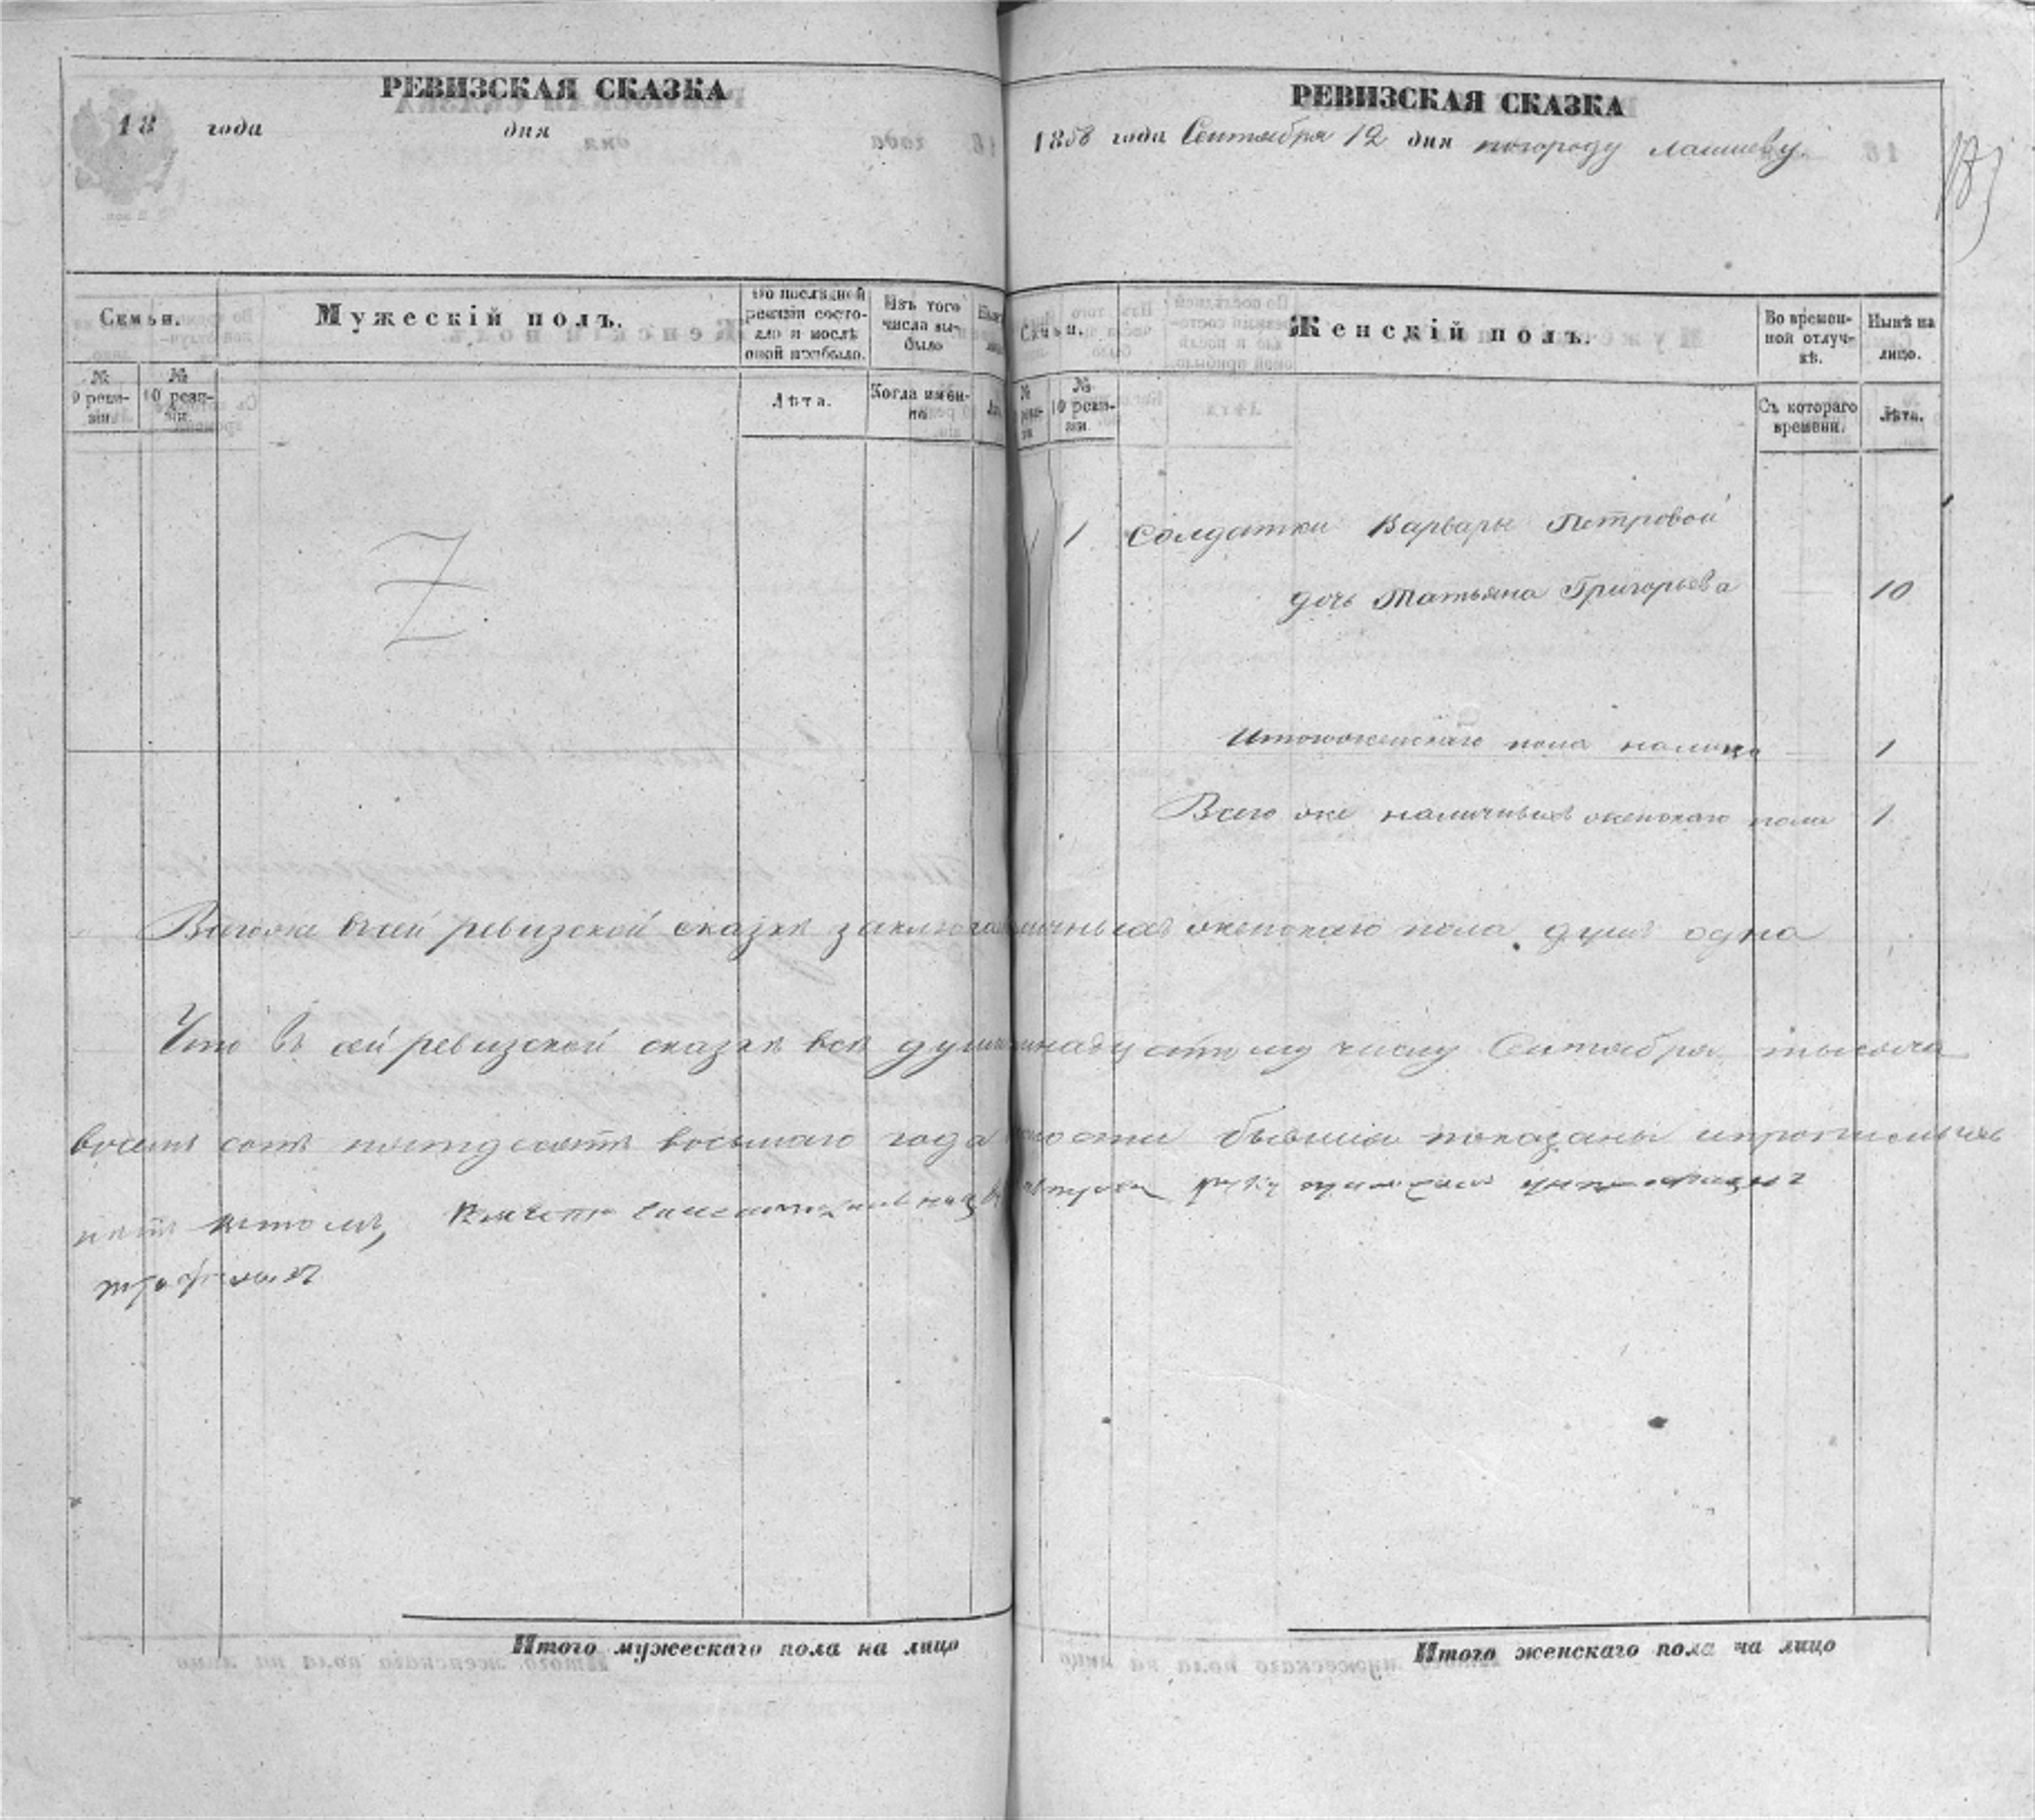 РЕВИЗСКАЯ СКАЗКА
18 года дня
Семьи.
Мужескій полъ.
По послѣдней ревизіи состояло и послѣ оной прибыло.
Изъ того числа выбыло
№ 9 ревизіи.
№ 10 ревизіи.
Лѣта.
Когда именно
Итого мужескаго пола на лицо
РЕВИЗСКАЯ СКАЗКА
1858 года Сентября 12 дня погороду Лаишеву.
Семьи.
Женскій полъ.
Во временной отлучкѣ.
Нынѣ на лицо.
№ ревизіи
№ 10 ревизіи.
Съ котораго времени.
Лѣта.
1 Солдатки Варвары Петровой
дочь Татьяна Григорьева 10
Итогоженскаго пола налицо 1
Всего же наличныхъ женскаго пола 1
Всегоже всей ревизской сказке женскаго пола душъ одна
Что въ сей ревизской сказке все числу Сентября тысяча
восемь сотъ пятдесятъ восьмаго года бывшіе показаны
Итого женскаго пола на лицо